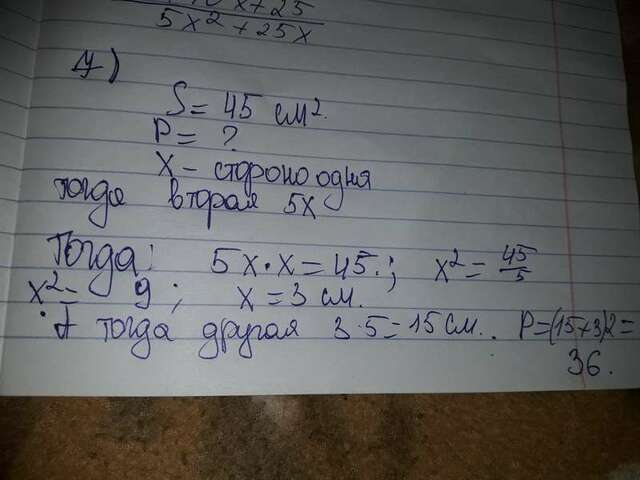 x+25
5x² + 25x
4)
S = 45 см².
P = ?
X – стороно одня
тогда вторая 5x
Тогда: 5x·x = 45.; x² = 45/5
x² = 9; x = 3 см.
А тогда другая 3·5 = 15 см.. P = (15+3)2 =
36.